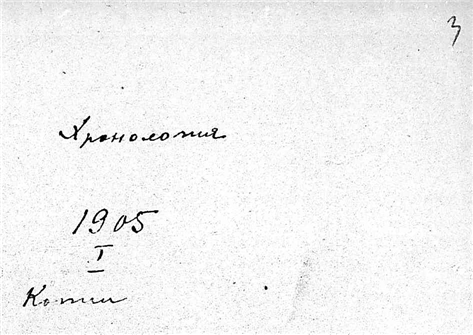 3
Хронология
1905
I
Копии